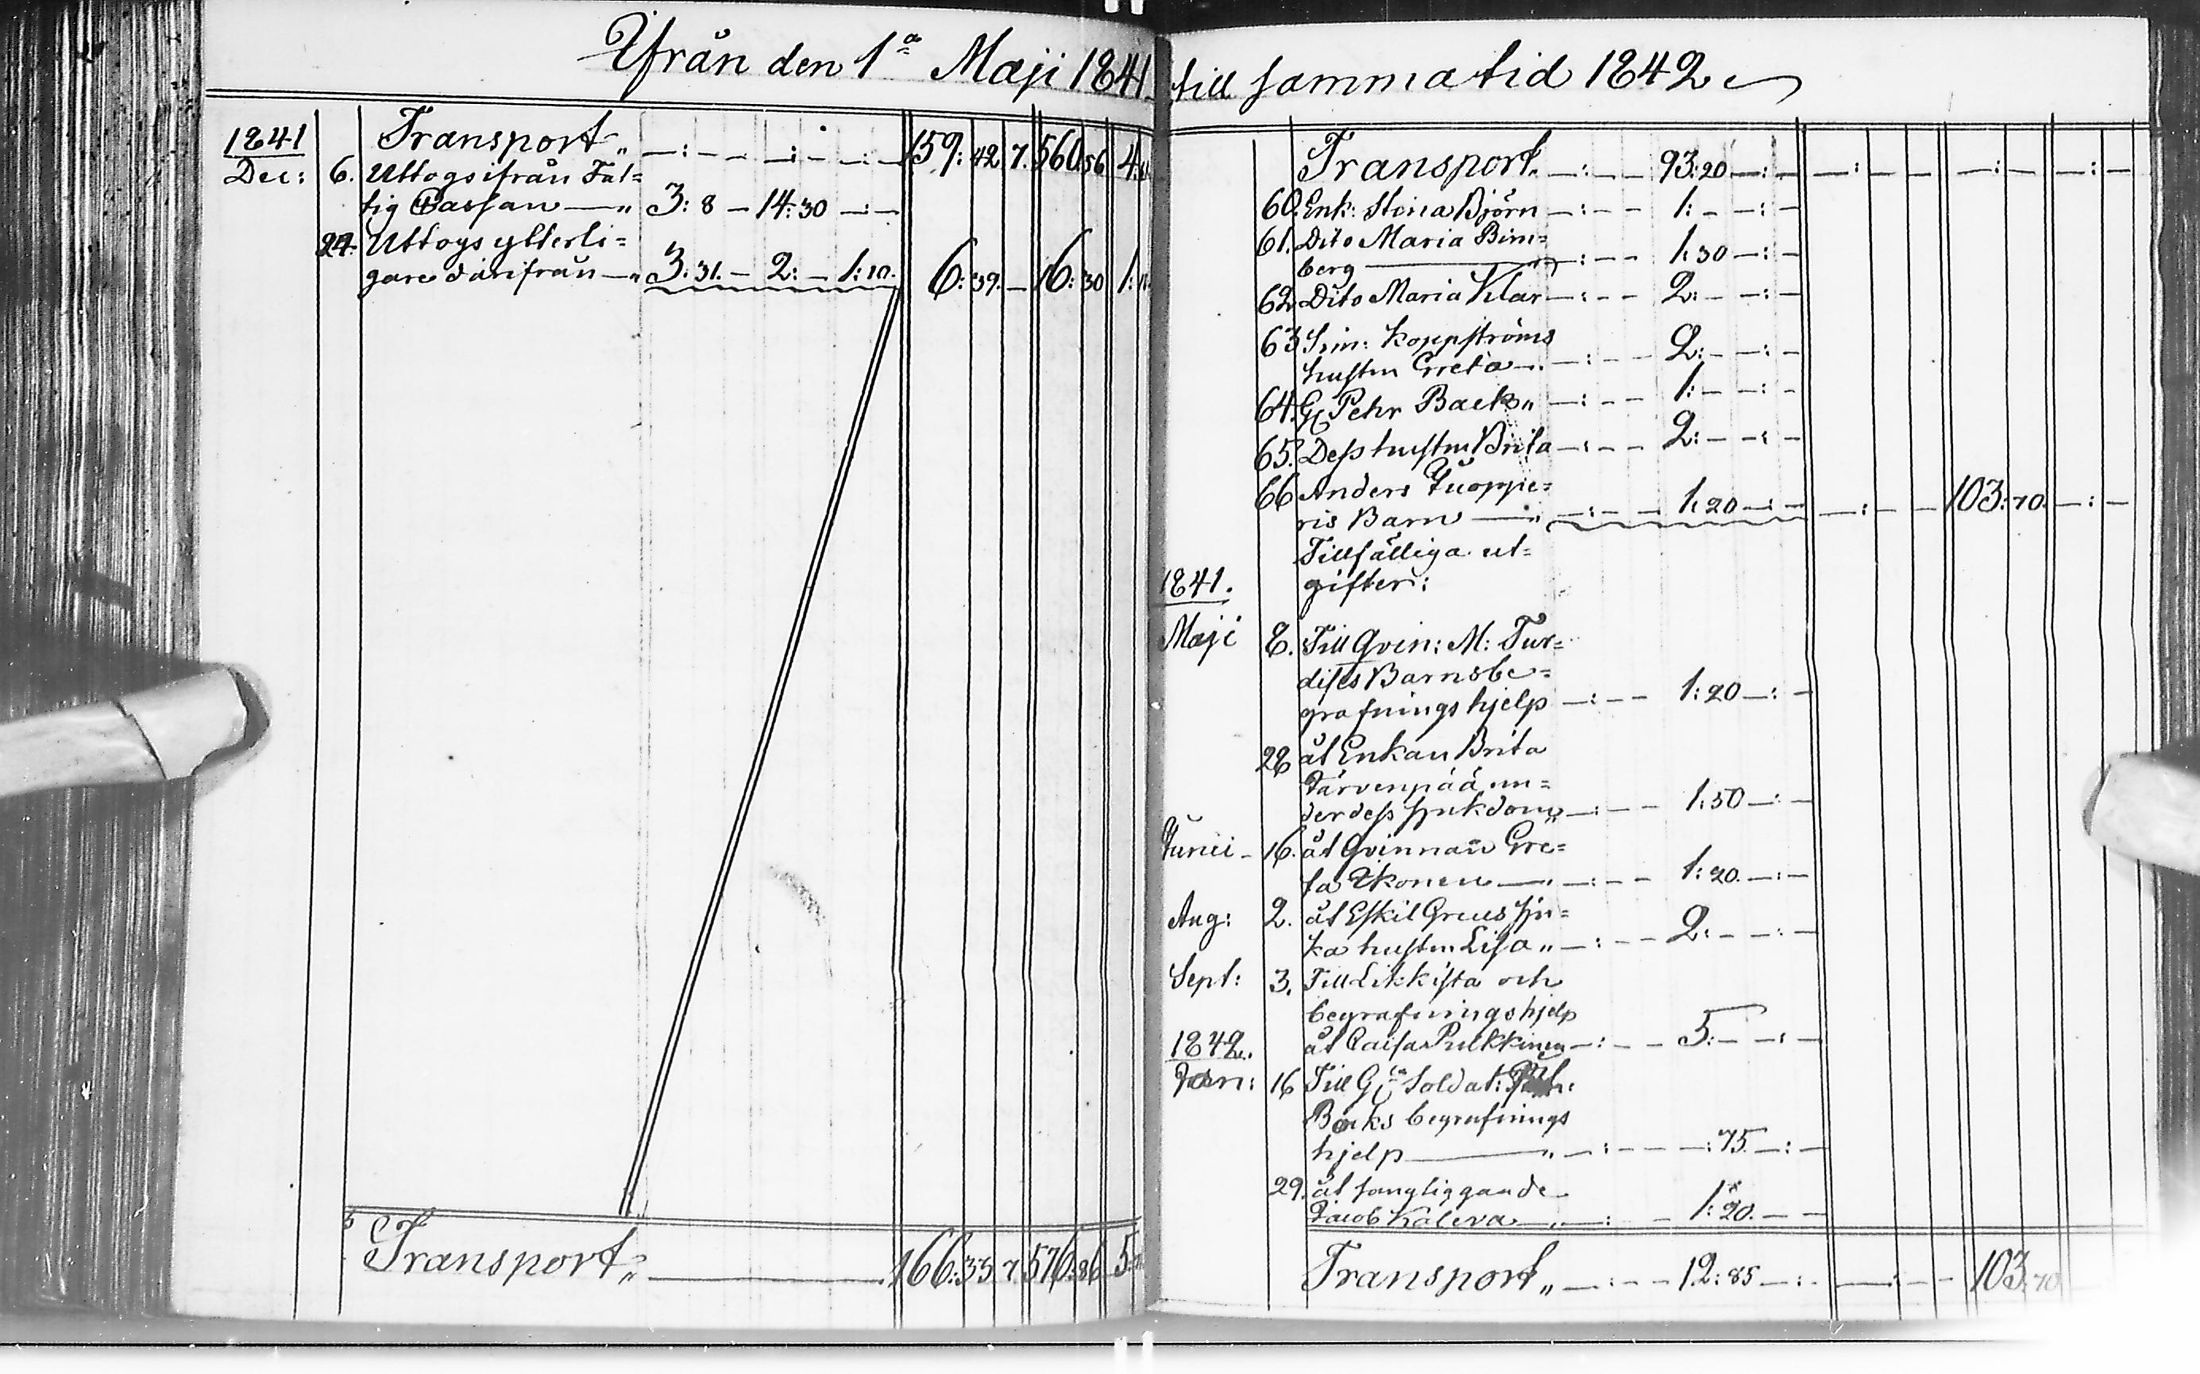 Ifrån den 1ª Maji 1841 till samma tid 1842
1841 Transport „ —:— — —:— —:— 159: 42 7. 560 56 4
Dec: 6. Uttogs ifrån Fat=
tig Cassan — „ 3: 8 — 14: 30 —:—
24. Uttogs ytterli=
gare därifrån — „ 3: 31. — 2: — 1: 10. 6: 39. — 16: 30 1:
Transport „ — 166: 33 7 576: 86 5:
Transport „ —:— — 93: 20 —:— —:— —:— —:—
60. Enk: Stina Björn —:— — 1: — —:—
61. Dito Maria Bim=
berg — „ —:— — 1: 30 —:—
62 Dito Maria Klar —:— — 2: — —:—
63 Sim: Koppströms
hustru Greta —. —:— — 2: — —:—
64. Pehr Back „ —:— — 1: — —:—
65. Dess hustru Brita —:— — 2: — —:—
66 Anders Juoppe=
ris Barn — „ —:— — 1: 20 —:— —:— — 103: 70. —:—
Tillfälliga ut=
gifter:
1841.
Maji 8. Till Qvin: M: Tur=
dises Barns be=
grafnings hjelp —:— — 1: 20 —:—
28 åt Enkan Brita
Järvenpää un=
der dess sjukdom „ —:— — 1: 50 —:—
Junii — 16. åt Qvinnan Gre=
ta Ikonen — „ —:— — 1: 20. —:—
Aug: 2. åt Eskil Greus sju=
ka hustru Lisa „ —:— — 2: — —:—
Sept: 3. Till Likkista och
begrafnings hjelp
åt Caisa Pulkkinen —:— — 5: — —:—
1842.
Jan: 16 Till Soldat:
Backs begrafnings
hjelp — „ —:— — —: 75. —:—
29. åt sängliggande
Jacob Kaleva — „ —: — 1: 20. — —
Transport „ —:— — 12: 85 —:— —:— — 103: 70